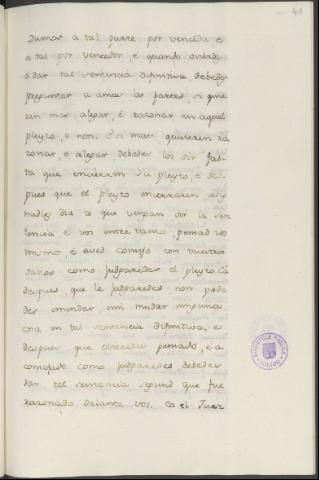 41
damos a tal parte por vencida, e
a tal por vencedor, e quando ovieredes
a dar tal sentencia difinitiva, debedes
preguntar a amas las partes, si quie
ren mas alegar, e razonar en aquel
pleyto, o non. E si mas quisieren ra
zonar, o alegar debedes los oir fas
ta que encierren su pleyto, e des
pues que el pleyto encerraren, asig
nadles dia a que vengan oir la sen
tencia e vos entre tanto, pensad vos
mismo, e aved consejo con vuestro
sabor como judgaredes el pleyto. Ca
despues, que le judgaredes non pode
des enmendar, nin mudar ninguna
cosa en tal sentencia difinitiva, e
despues que ovieredes pensado, e a
consejado como judgaredes debedes
dar tal sentencia segund que fue
razonado delante vos. Ca el Juez
BIBLIOTECA PUBLICA
TOLEDO